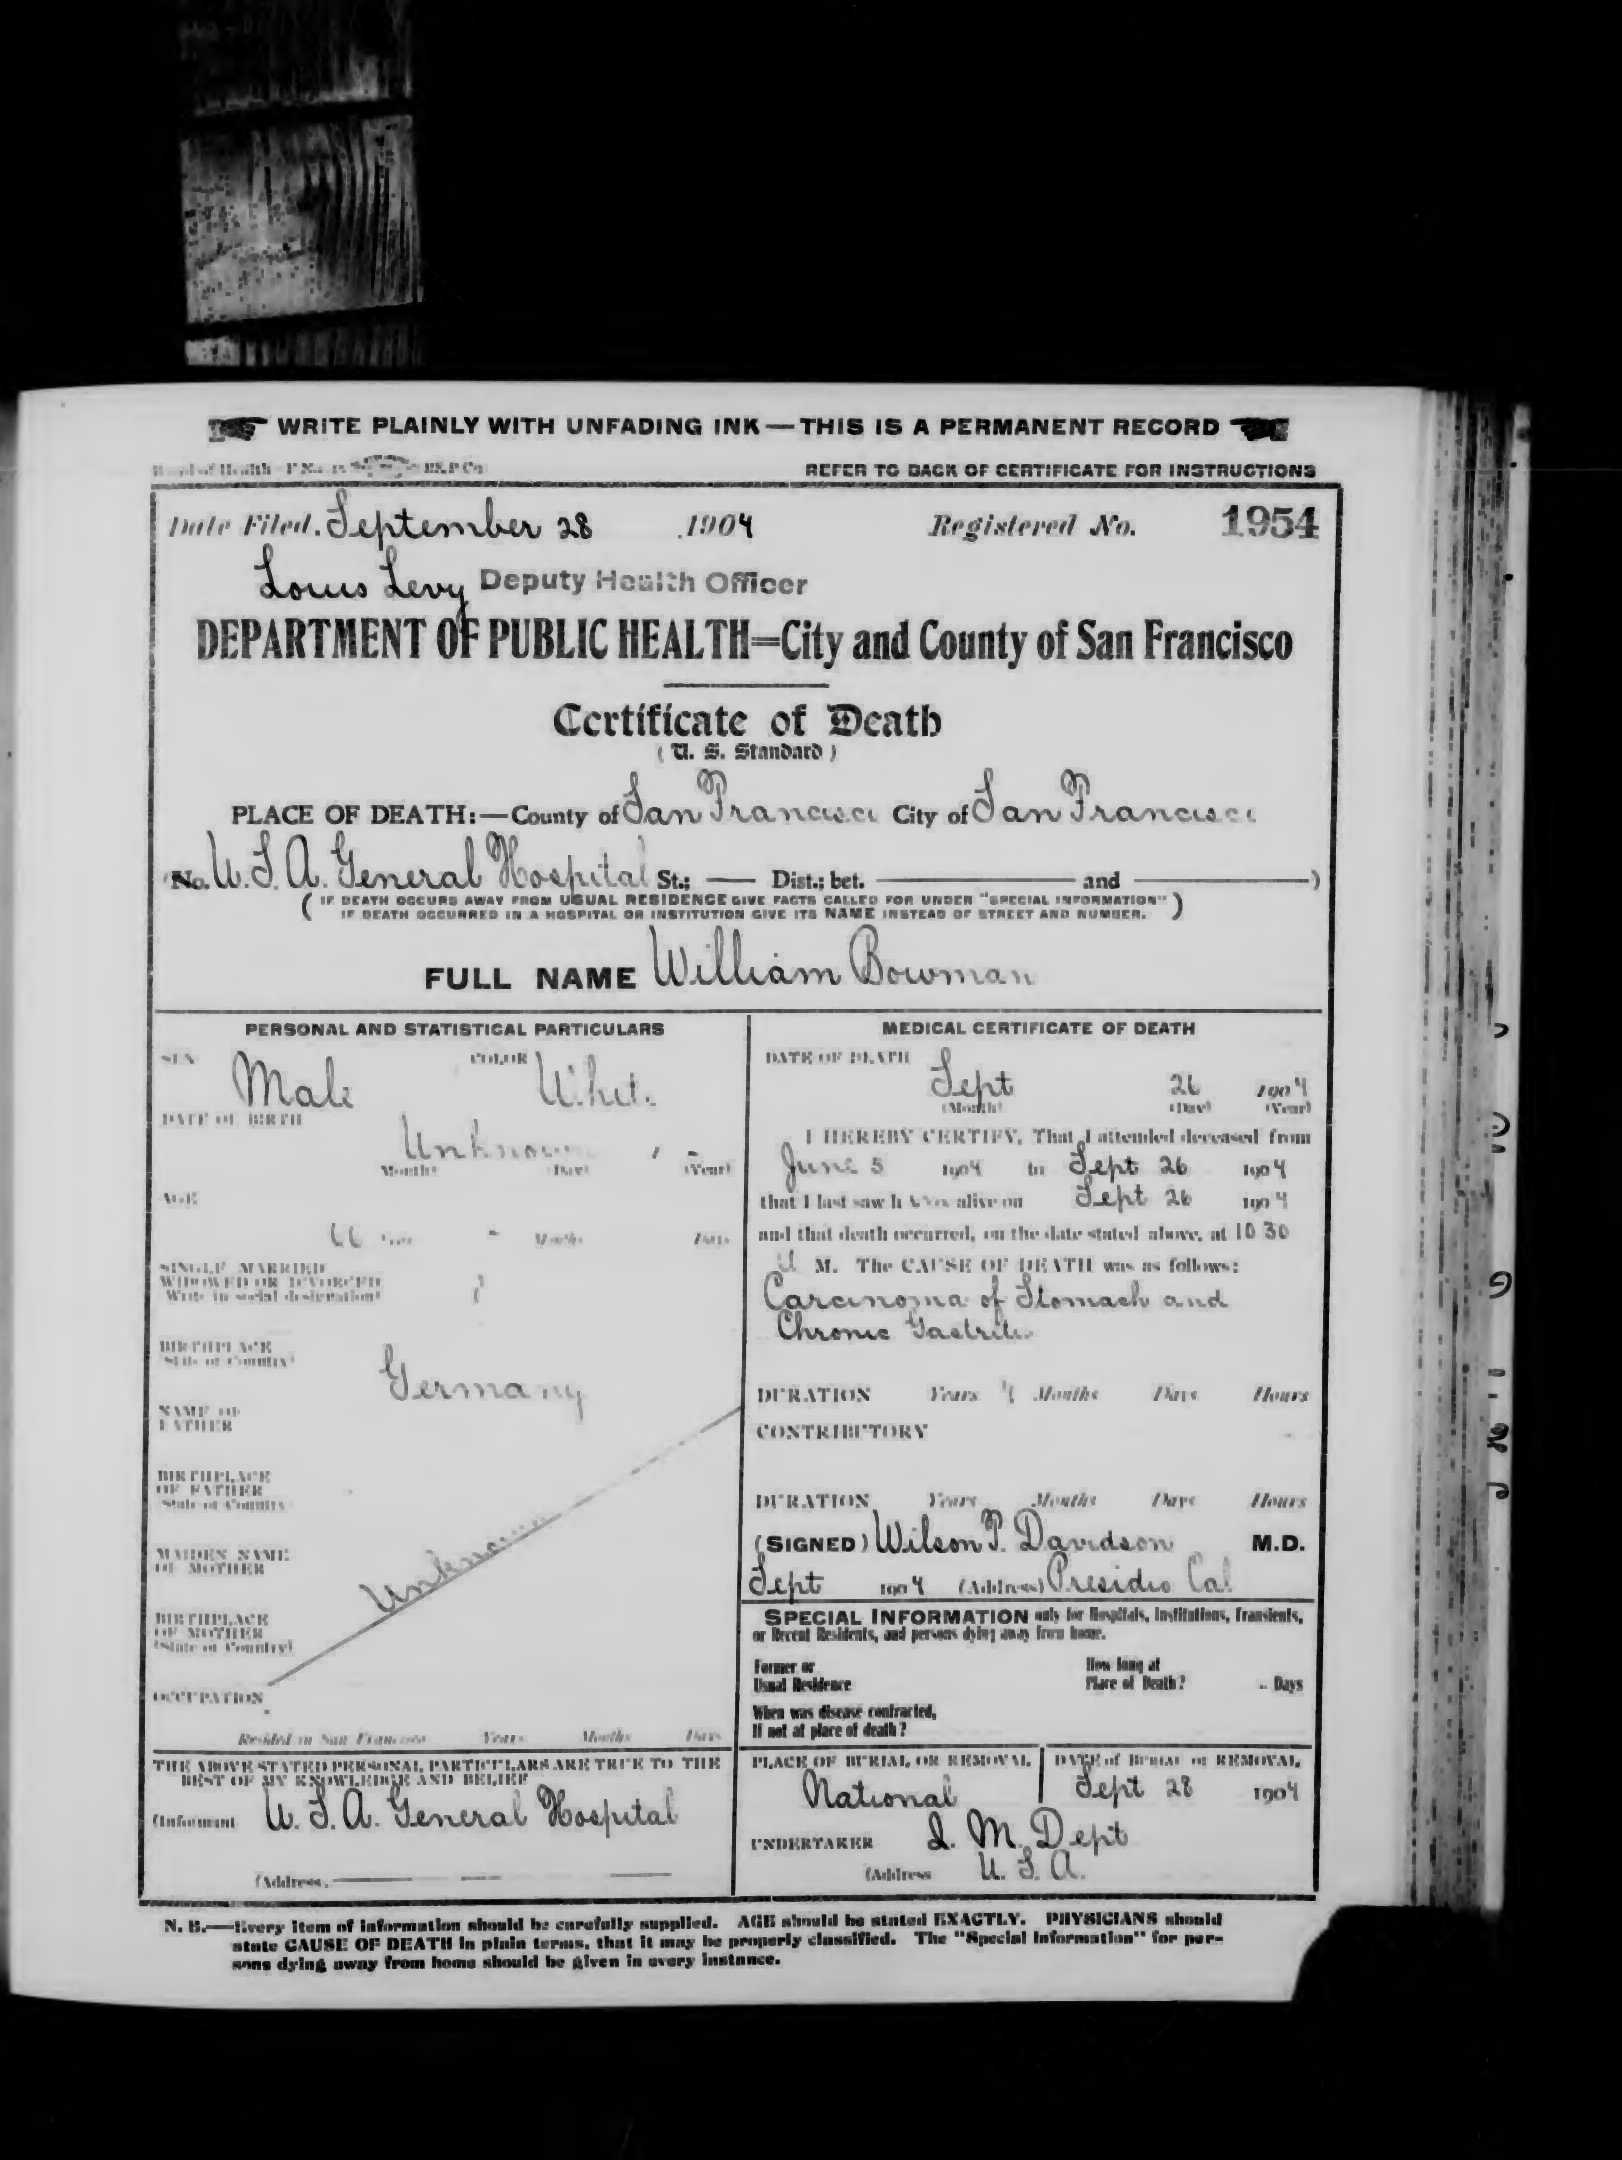 WRITE PLAINLY WITH UNFADING INK—THIS IS A PERMANENT RECORD
Board of Health
REFER TO BACK OF CERTIFICATE FOR INSTRUCTIONS
Date Filed, September 28 1904 Registered No. 1954
Louis Levy Deputy Health Officer
DEPARTMENT OF PUBLIC HEALTH=City and County of San Francisco
Certificate of Death
(U. S. Standard)
PLACE OF DEATH:—County of San Francisco City of San Francisco
(No. U. S. A. General Hospital St.; — Dist.; bet. — and —)
(IF DEATH OCCURS AWAY FROM USUAL RESIDENCE GIVE FACTS CALLED FOR UNDER "SPECIAL INFORMATION"
IF DEATH OCCURRED IN A HOSPITAL OR INSTITUTION GIVE ITS NAME INSTEAD OF STREET AND NUMBER.)
FULL NAME William Bowman
PERSONAL AND STATISTICAL PARTICULARS
SEX Male COLOR White
DATE OF BIRTH
Unknown
(Month) (Day) (Year)
AGE
Years Months Days
SINGLE, MARRIED
WIDOWED OR DIVORCED
(Write in social designation)
BIRTHPLACE
(State or Country)
Germany
NAME OF
FATHER
BIRTHPLACE
OF FATHER
(State or Country)
MAIDEN NAME
OF MOTHER
Unknown
BIRTHPLACE
OF MOTHER
(State or Country)
OCCUPATION
Resided in San Francisco Years Months Days
THE ABOVE STATED PERSONAL PARTICULARS ARE TRUE TO THE
BEST OF MY KNOWLEDGE AND BELIEF
(Informant U. S. A. General Hospital
(Address,
MEDICAL CERTIFICATE OF DEATH
DATE OF DEATH
Sept 26 1904
(Month) (Day) (Year)
I HEREBY CERTIFY, That I attended deceased from
June 5 1904 to Sept 26 1904
that I last saw him alive on Sept 26 1904
and that death occurred, on the date stated above, at 10 30
M. The CAUSE OF DEATH was as follows:
Carcinoma of Stomach and
Chronic Gastritis
DURATION Years Months Days Hours
CONTRIBUTORY
DURATION Years Months Days Hours
(SIGNED) Wilson P. Davidson M.D.
Sept 1904 (Address) Presidio Cal
SPECIAL INFORMATION only for Hospitals, Institutions, Transients,
or Recent Residents, and persons dying away from home.
Former or
Usual Residence
How long at
Place of Death? Days
When was disease contracted,
If not at place of death?
PLACE OF BURIAL OR REMOVAL
National
DATE of BURIAL or REMOVAL
Sept 28 1904
UNDERTAKER Q. M. Dept
(Address U. S. A.
N. B.—Every item of information should be carefully supplied. AGE should be stated EXACTLY. PHYSICIANS should
state CAUSE OF DEATH in plain terms, that it may be properly classified. The "Special Information" for per-
sons dying away from home should be given in every instance.